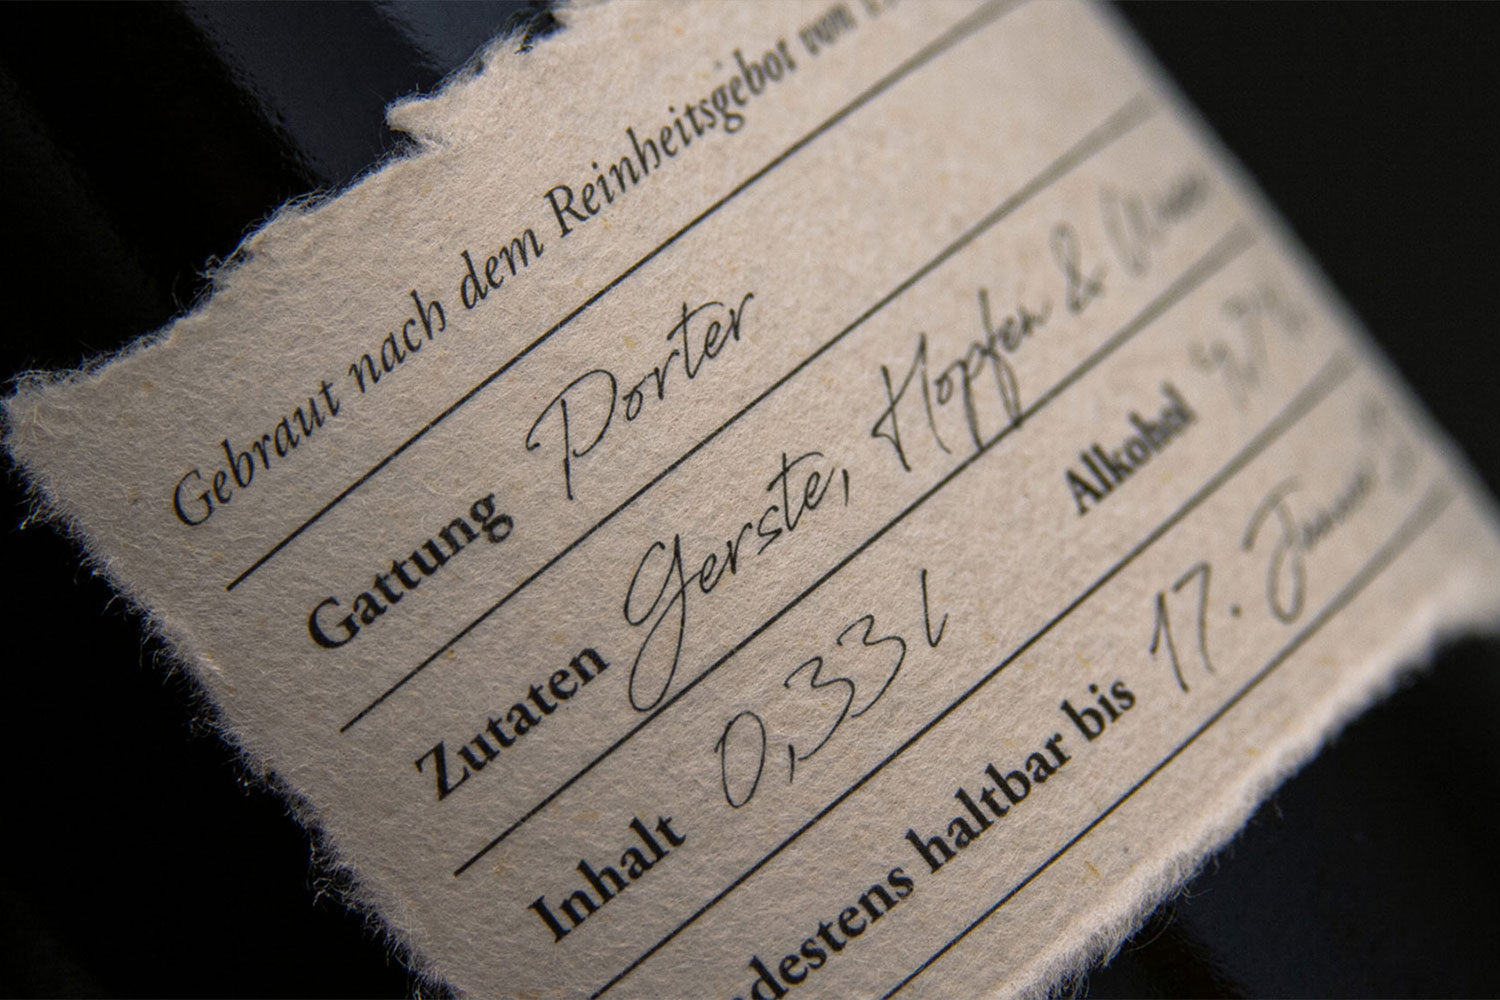 Gebraut nach dem Reinheitsgebot vom
Gattung Porter
Zutaten Gerste, Hopfen &
Inhalt 0,33 l Alkohol
destens haltbar bis 17.